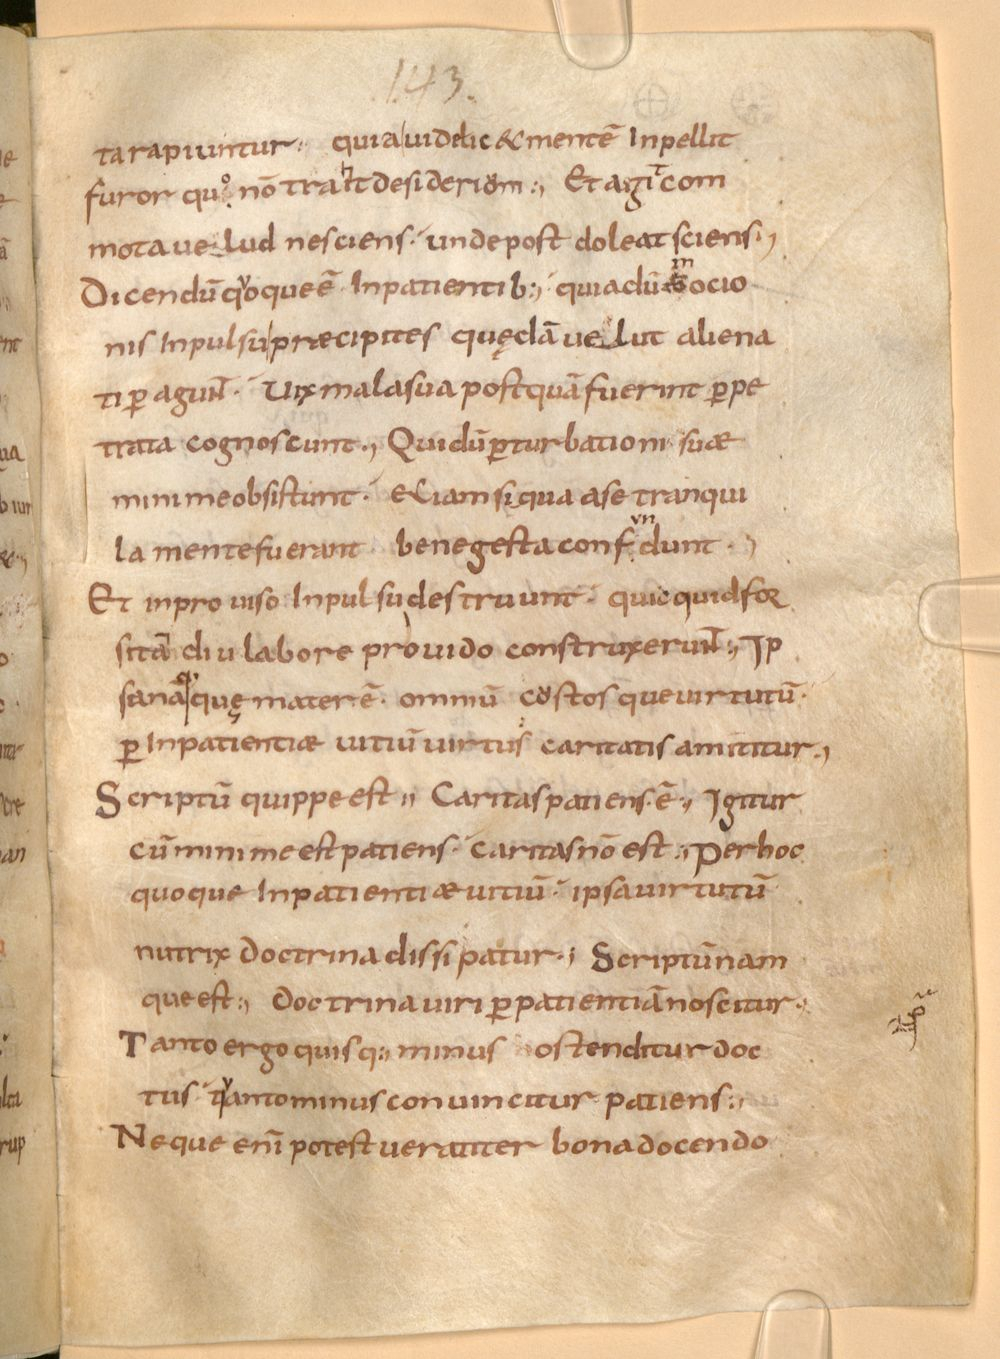 143.
tarapiuntur· quia uidelic & mentē Inpellit
furor quo nō trahit desiderium:, Et agit com
mota uelud nesciens· unde post doleat sciens·,
Dicendū quoque ē Inpatientib:, quia dū in
ocio
nis Inpulsu præcipites quędā uelut aliena
ti p̄ agunt· Uix mala sua postquā fuerint p̄pe
trata cognoscunt·, Qui dū p̄turbationi suæ
minime obsistunt· etiam si qua a se tranqui
la mente fuerant bene gesta confundunt·,
Et inprouiso Inpulsu destruunt· quicquid for
sitā diu labore prouido construxerunt:, Ip
sa nāque quę mater ē· omniū costosque uirtutū·
p̄ Inpatientiæ uitiū uirtus caritatis amititur·,
Scriptū quippe est:, Caritas patiens·ē·, Igitur
cū minime est patiens· caritas nō est:, Per hoc
quoque Inpatientiæ uitiū· ipsa uirtutū
nutrix doctrina dissipatur·, Scriptū nam
que est:, Doctrina uiri p̄ patientiā noscitur·
Tanto ergo quisq: minus ostenditur doc
tus· tanto minus conuincitur patiens:,
Neque enī potest ueraciter bona docendo